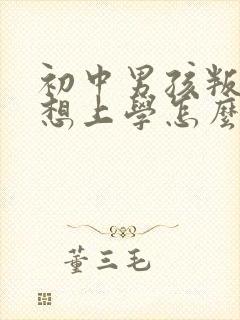 初中男孩叛
想上學怎麼
董三毛